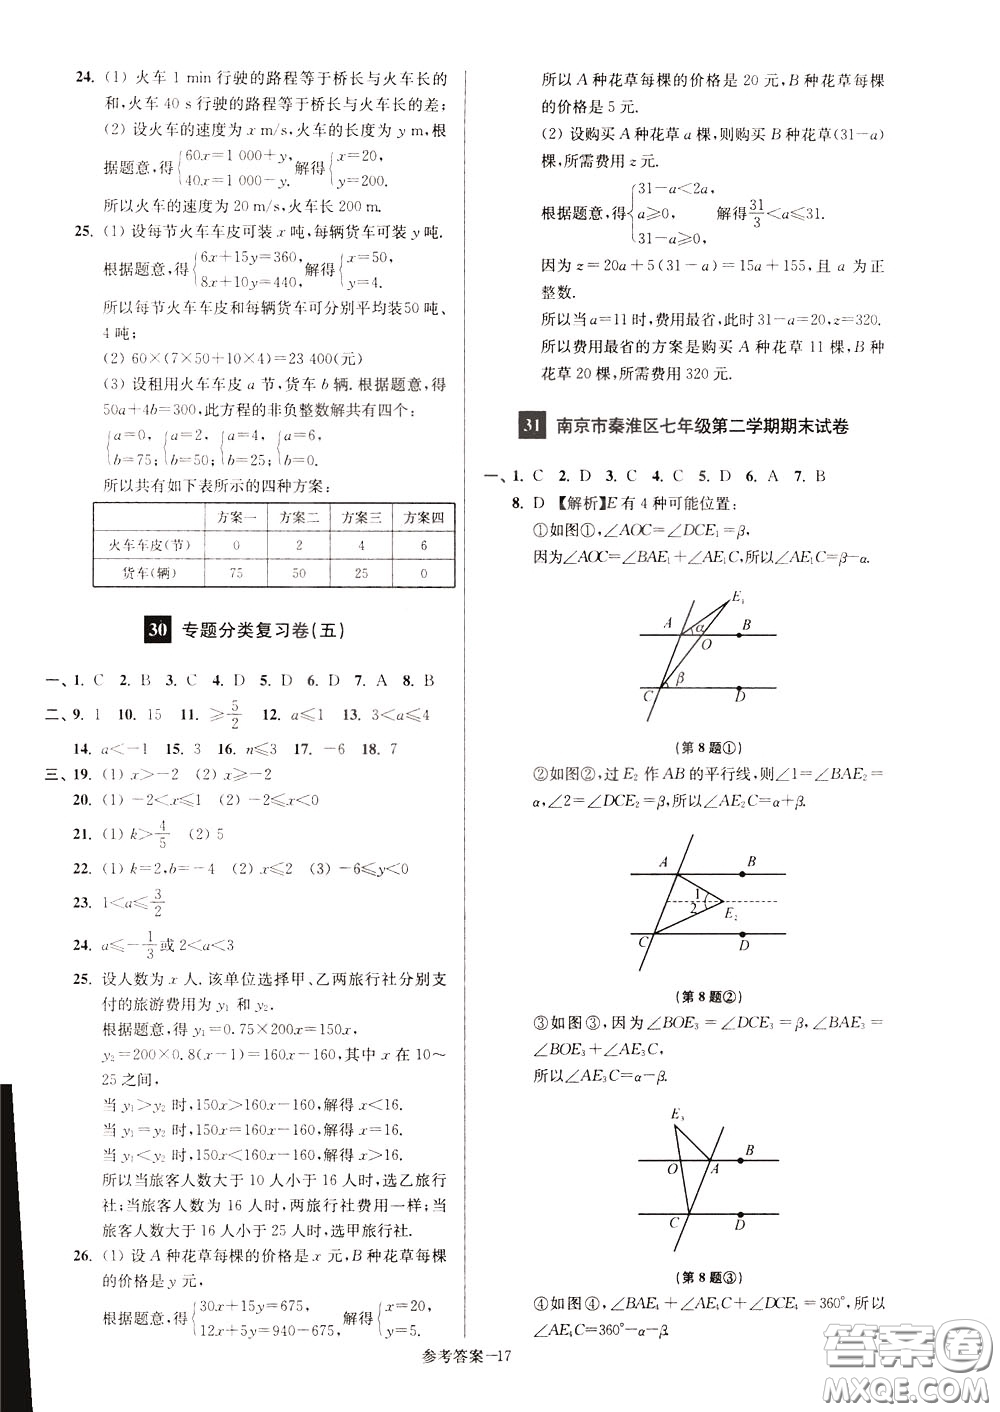 24. (1) 火车 1 min 行驶的路程等于桥长与火车长的
和,火车 40 s 行驶的路程等于桥长与火车长的差;
(2) 设火车的速度为 x m/s,火车的长度为 y m,根
据题意,得{60x=1 000+y, 40x=1 000-y. 解得{x=20, y=200.
所以火车的速度为 20 m/s,火车长 200 m.
25. (1) 设每节火车车皮可装 x 吨,每辆货车可装 y 吨.
根据题意,得{6x+15y=360, 8x+10y=440, 解得{x=50, y=4.
所以每节火车车皮和每辆货车可分别平均装50 吨、
4 吨;
(2) 60×(7×50+10×4)=23 400(元)
(3) 设租用火车车皮 a 节,货车 b 辆. 根据题意,得
50a+4b=300,此方程的非负整数解共有四个:
{a=0, b=75; {a=2, b=50; {a=4, b=25; {a=6, b=0.
所以共有如下表所示的四种方案:
方案一 方案二 方案三 方案四
火车车皮(节) 0 2 4 6
货车(辆) 75 50 25 0
30 专题分类复习卷(五)
一、1. C 2. B 3. C 4. D 5. D 6. D 7. A 8. B
二、9. 1 10. 15 11. ≥5/2 12. a≤1 13. 3<a≤4
14. a<-1 15. 3 16. n≤3 17. -6 18. 7
三、19. (1) x>-2 (2) x≥-2
20. (1) -2<x≤1 (2) -2≤x<0
21. (1) k>4/5 (2) 5
22. (1) k=2,b=-4 (2) x≤2 (3) -6≤y<0
23. 1<a≤3/2
24. a≤-1/3或 2<a<3
25. 设人数为 x 人. 该单位选择甲、乙两旅行社分别支
付的旅游费用为 y₁ 和 y₂.
根据题意,得 y₁=0.75×200x=150x,
y₂=200×0.8(x-1)=160x-160,其中 x 在 10~
25 之间,
当 y₁>y₂ 时,150x>160x-160,解得 x<16.
当 y₁=y₂ 时,150x=160x-160,解得 x=16.
当 y₁<y₂ 时,150x<160x-160,解得 x>16.
所以当旅客人数大于 10 人小于 16 人时,选乙旅行
社;当旅客人数为 16 人时,两旅行社费用一样;当
旅客人数大于 16 人小于 25 人时,选甲旅行社.
26. (1) 设 A 种花草每棵的价格是 x 元,B 种花草每棵
的价格是 y 元,
根据题意,得{30x+15y=675, 12x+5y=940-675, 解得{x=20, y=5.
所以 A 种花草每棵的价格是 20 元,B 种花草每棵
的价格是 5 元.
(2) 设购买 A 种花草 a 棵,则购买 B 种花草(31-a)
棵,所需费用 z 元.
根据题意,得{31-a<2a, a≥0, 31-a≥0, 解得31/3<a≤31.
因为 z=20a+5(31-a)=15a+155,且 a 为正
整数.
所以当 a=11 时,费用最省,此时 31-a=20,z=320.
所以费用最省的方案是购买 A 种花草 11 棵,B 种
花草 20 棵,所需费用 320 元.
31 南京市秦淮区七年级第二学期期末试卷
一、1. C 2. D 3. C 4. C 5. D 6. A 7. B
8. D 【解析】E 有 4 种可能位置:
①如图①,∠AOC=∠DCE₁=β,
因为∠AOC=∠BAE₁+∠AE₁C,所以∠AE₁C=β-α.
E₁
A α B
O
C β D
(第 8 题①)
②如图②,过 E₂ 作 AB 的平行线,则∠1=∠BAE₂=
α,∠2=∠DCE₂=β,所以∠AE₂C=α+β.
A B
1
2 E₂
C D
(第 8 题②)
③如图③,因为∠BOE₃=∠DCE₃=β,∠BAE₃=
∠BOE₃+∠AE₃C,
所以∠AE₃C=α-β.
E₃
O A B
C D
(第 8 题③)
④如图④,∠BAE₄+∠AE₄C+∠DCE₄=360°,所以
∠AE₄C=360°-α-β.
参考答案—17
答案圈
MXQE.COM